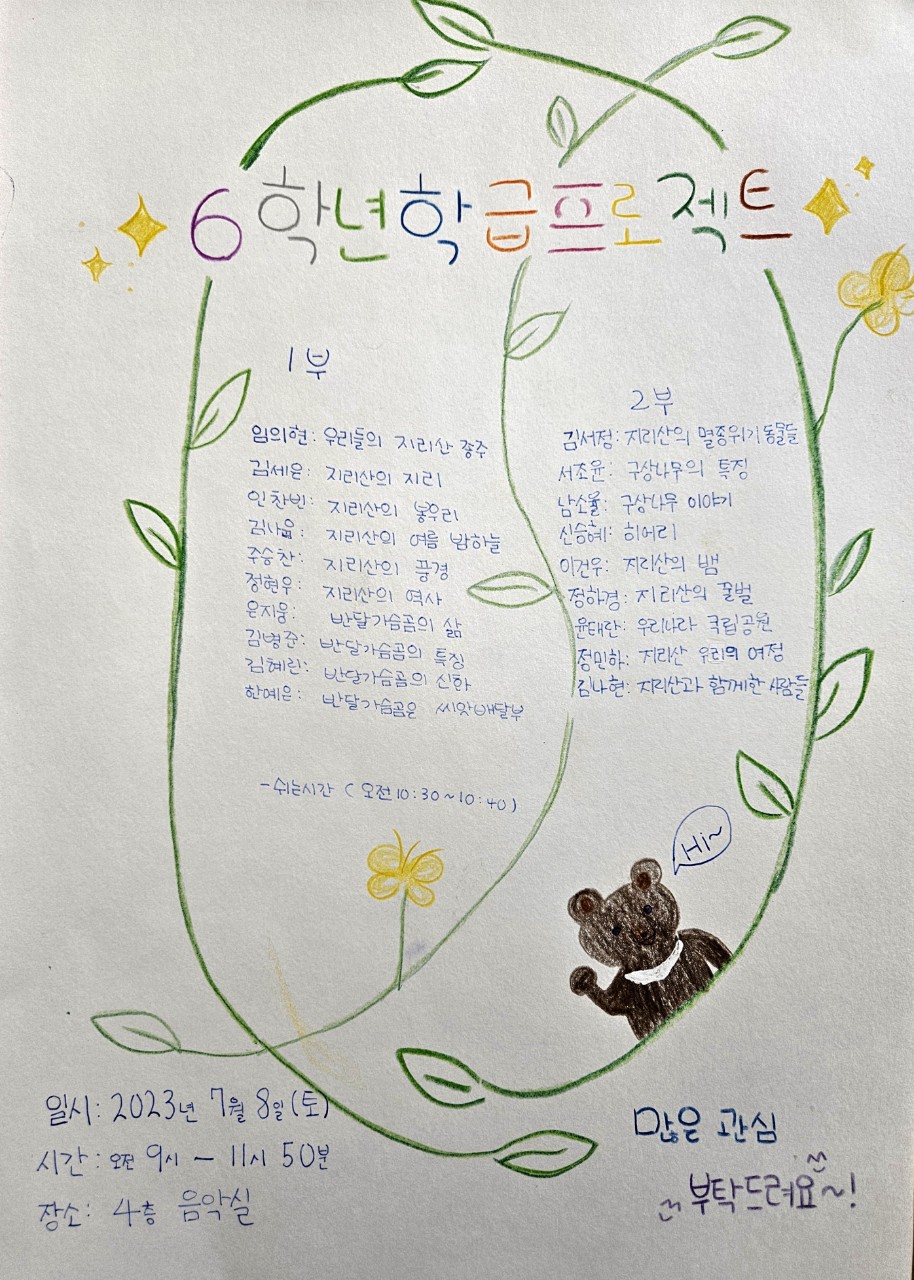 6학년학급프로젝트
1부
임의현: 우리들의 지리산 종주
김세은: 지리산의 지리
인찬빈: 지리산의 봉우리
김나윫: 지리산의 여름 밤하늘
주승찬: 지리산의 풍경
정현우: 지리산의 역사
윤지웅: 반달가슴곰의 삶
김병준: 반달가슴곰의 특징
김혜린: 반달가슴곰의 신화
한예은: 반달가슴곰은 씨앗배달부
-쉬는시간 (오전10:30~10:40)
2부
김서정: 지리산의 멸종위기동물들
서조윤: 구상나무의 특징
남소율: 구상나무 이야기
신승혜: 히어리
이건우: 지리산의 뱀
정하경: 지리산의 꿀벌
윤태란: 우리나라 국립공원
정민하: 지리산 우리의 여정
김나현: 지리산과 함께한 사람들
Hi~
일시: 2023년 7월 8일(토)
시간: 오전 9시 - 11시 50분
장소: 4층 음악실
많은 관심
부탁드려요~!